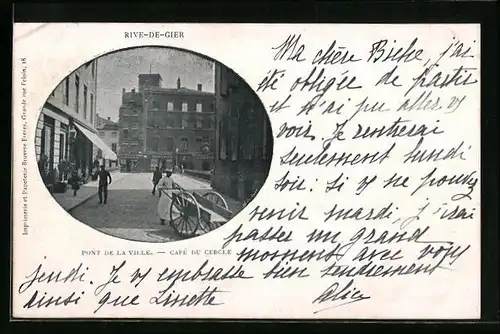 RIVE-DE-GIER
Ma chère Biche, j'ai
été obligée de partir
et n'ai pu aller vs
voir. Je rentrerai
seulement lundi
soir: si vs ne pouvez
venir mardi, j'irai
passer un grand
moment avec vous
jeudi. Je vs embrasse bien tendrement
ainsi que Linette
Alice
PONT DE LA VILLE. — CAFÉ DU CERCLE
Imprimerie et Papeterie Frères, Grande rue Féloin, 18